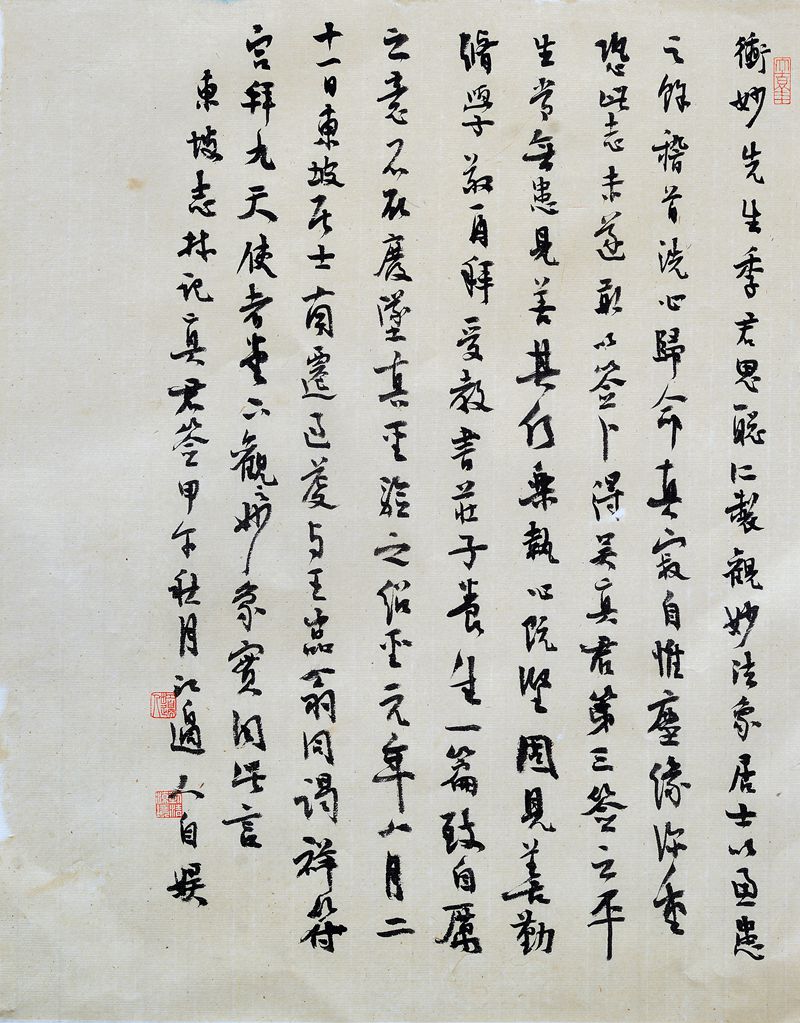 衝妙先生季君思聰仁製觀妙法象居士以憂患
之餘稽首洗心歸命真寂自惟塵緣深重
恐此志未遂敢以簽卜得吴真君第三簽云平
生常無患見善其何樂執心既堅固見善勤
脩學敬再拜受教書莊子養生一篇致自厲
之意不敢廢墜真聖驗之紹聖元年八月二
十一日東坡居士南遷過虔與王嵓翁同謁祥符
宮拜九天使者堂下觀之妙象實同此言
東坡志林記真君簽甲午秋月江適人自娱